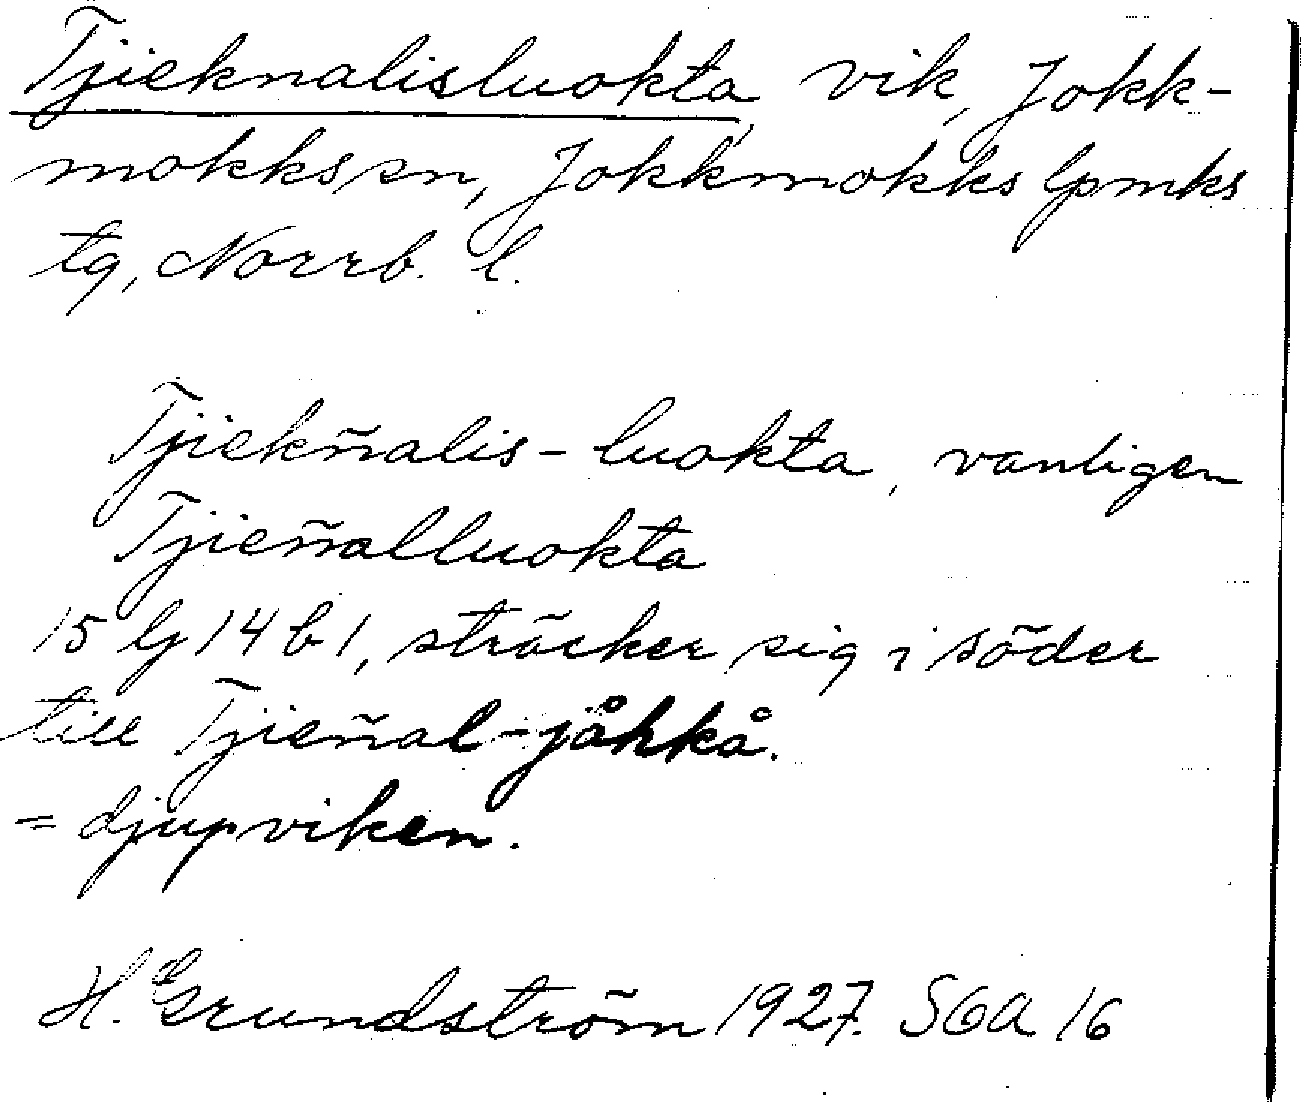 Tjieknalisluokta, vik, Jokk-
mokks sn, Jokkmokks lpmks
tg, Norrb. l.
Tjiekñalis-luokta, vanligen
Tjieñalluokta
15 lj 14 b 1, sträcker sig i söder
till Tjieñal-jåhkå.
= djupviken.
H. Grundström 1927. SGA 16